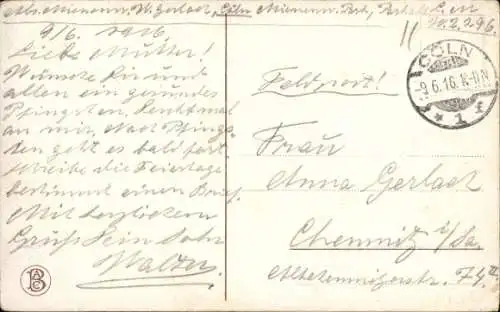 W. Gerlach, Cöln
9/6. 1916.
Liebe Mutter!
Wünsche Dir und
allen ein gesundes
Pfingsten, denkt mal
an mir, Nach Pfings-
ten geht es bald fort
schreibe die Feiertage
bestimmt einen Brief.
Mit herzlichem
Gruß Dein Sohn
Walter.
Feldpost!
CÖLN
9.6.16. 11-12 N
* 1 f
Frau
Anna Gerlach
Chemnitz i/Sa.
74 III